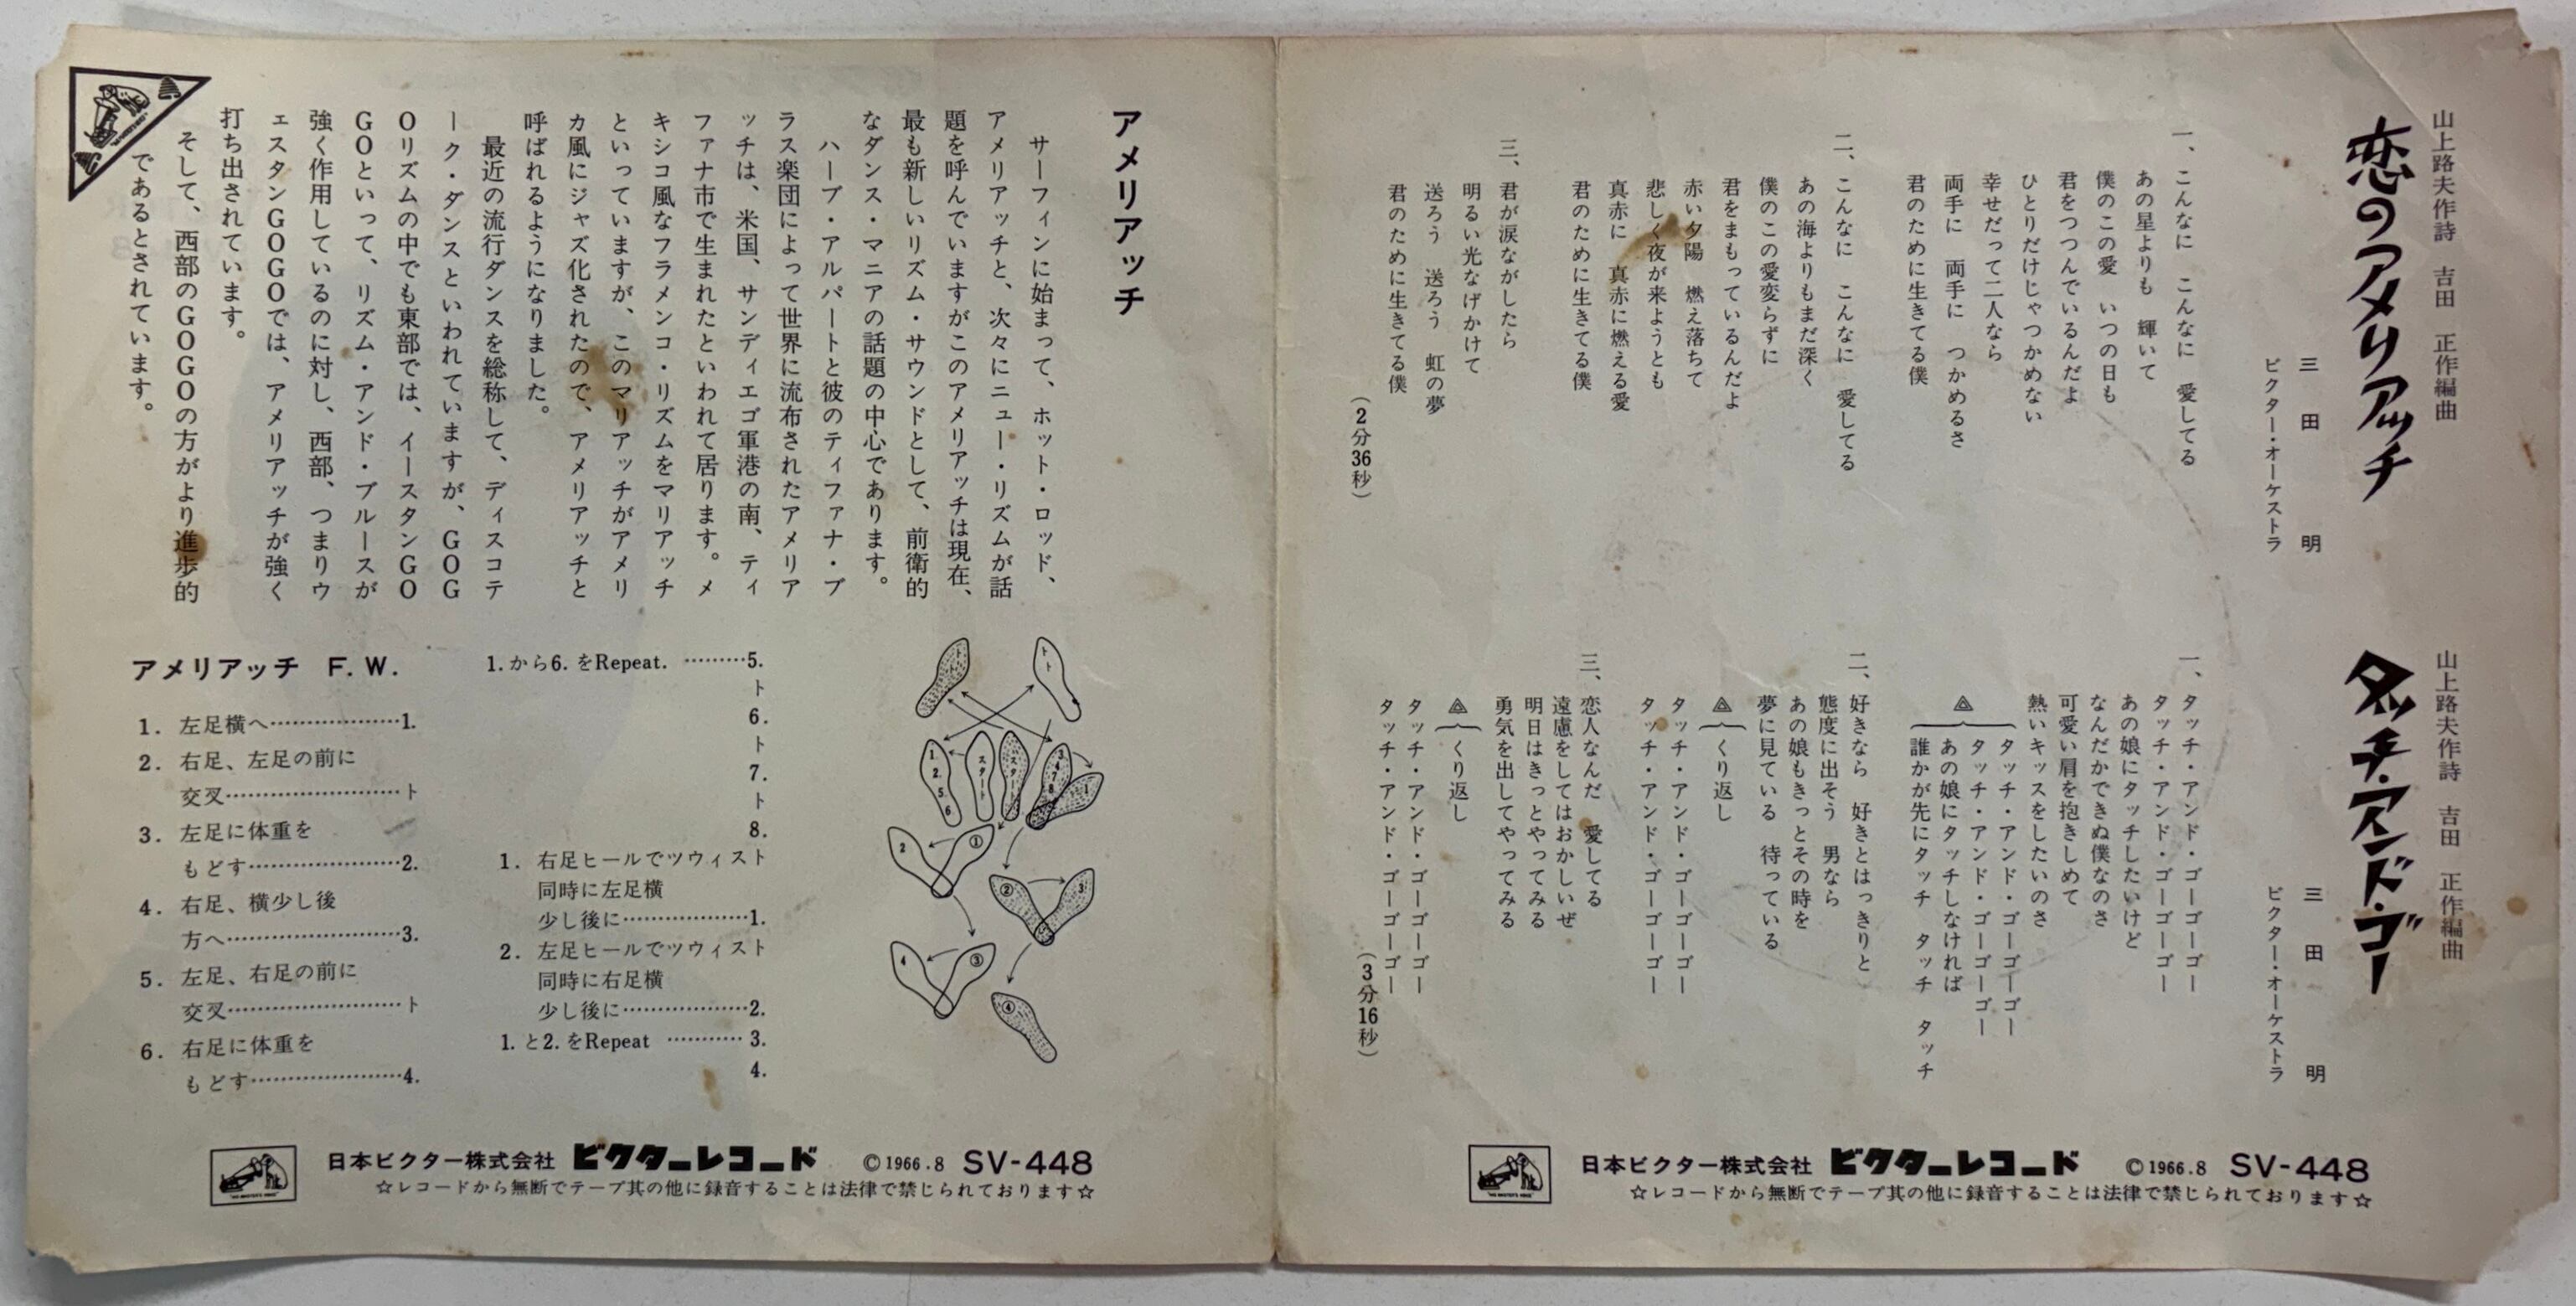 山上路夫作詩　吉田　正作編曲
恋のアメリアッチ
三田　明
ビクター・オーケストラ
一、こんなに　こんなに　愛してる
あの星よりも　輝いて
僕のこの愛　いつの日も
君をつつんでいるんだよ
ひとりだけじゃつかめない
幸せだって二人なら
両手に　両手に　つかめるさ
君のために生きてる僕
二、こんなに　こんなに　愛してる
あの海よりもまだ深く
僕のこの愛変らずに
君をまもっているんだよ
赤い夕陽　燃え落ちて
悲しく夜が来ようとも
真赤に　真赤に燃える愛
君のために生きてる僕
三、君が涙ながしたら
明るい光なげかけて
送ろう　送ろう　虹の夢
君のために生きてる僕
（2分36秒）
山上路夫作詩　吉田　正作編曲
タッチ・アンド・ゴー
三田　明
ビクター・オーケストラ
一、タッチ・アンド・ゴーゴーゴー
タッチ・アンド・ゴーゴーゴー
あの娘にタッチしたいけど
なんだかできぬ僕なのさ
可愛い肩を抱きしめて
熱いキッスをしたいのさ
タッチ・アンド・ゴーゴーゴー
タッチ・アンド・ゴーゴーゴー
あの娘にタッチしなければ
誰かが先にタッチ　タッチ　タッチ
二、好きなら　好きとはっきりと
態度に出そう　男なら
あの娘もきっとその時を
夢に見ている　待っている
くり返し
タッチ・アンド・ゴーゴーゴー
タッチ・アンド・ゴーゴーゴー
三、恋人なんだ　愛してる
遠慮をしてはおかしいぜ
明日はきっとやってみる
勇気を出してやってみる
くり返し
タッチ・アンド・ゴーゴーゴー
タッチ・アンド・ゴーゴーゴー
（3分16秒）
日本ビクター株式会社　ビクターレコード　©1966.8　SV-448
☆レコードから無断でテープ其の他に録音することは法律で禁じられております☆
アメリアッチ
サーフィンに始まって、ホット・ロッド、
アメリアッチと、次々にニュー・リズムが話
題を呼んでいますがこのアメリアッチは現在、
最も新しいリズム・サウンドとして、前衛的
なダンス・マニアの話題の中心であります。
ハーブ・アルパートと彼のティファナ・ブ
ラス楽団によって世界に流布されたアメリア
ッチは、米国、サンディエゴ軍港の南、ティ
ファナ市で生まれたといわれて居ります。メ
キシコ風なフラメンコ・リズムをマリアッチ
といっていますが、このマリアッチがアメリ
カ風にジャズ化されたので、アメリアッチと
呼ばれるようになりました。
最近の流行ダンスを総称して、ディスコテ
ーク・ダンスといわれていますが、GOG
Oリズムの中でも東部では、イースタンGO
GOといって、リズム・アンド・ブルースが
強く作用しているのに対し、西部、つまりウ
ェスタンGOGOでは、アメリアッチが強く
打ち出されています。
そして、西部のGOGOの方がより進歩的
であるとされています。
アメリアッチ　F. W.
1. 左足横へ………………1.
2. 右足、左足の前に
交叉……………………ト
3. 左足に体重を
もどす…………………2.
4. 右足、横少し後
方へ……………………3.
5. 左足、右足の前に
交叉……………………ト
6. 右足に体重を
もどす…………………4.
1.から6.をRepeat. ………5.
ト
6.
ト
7.
ト
8.
1. 右足ヒールでツウィスト
同時に左足横
少し後に………………1.
2. 左足ヒールでツウィスト
同時に右足横
少し後に………………2.
1.と2.をRepeat ………… 3.
4.
ト
ト
1
2
5
6
スタート
スタート
3
4
7
8
1
2
①
②
3
4
③
④
日本ビクター株式会社　ビクターレコード　©1966.8　SV-448
☆レコードから無断でテープ其の他に録音することは法律で禁じられております☆